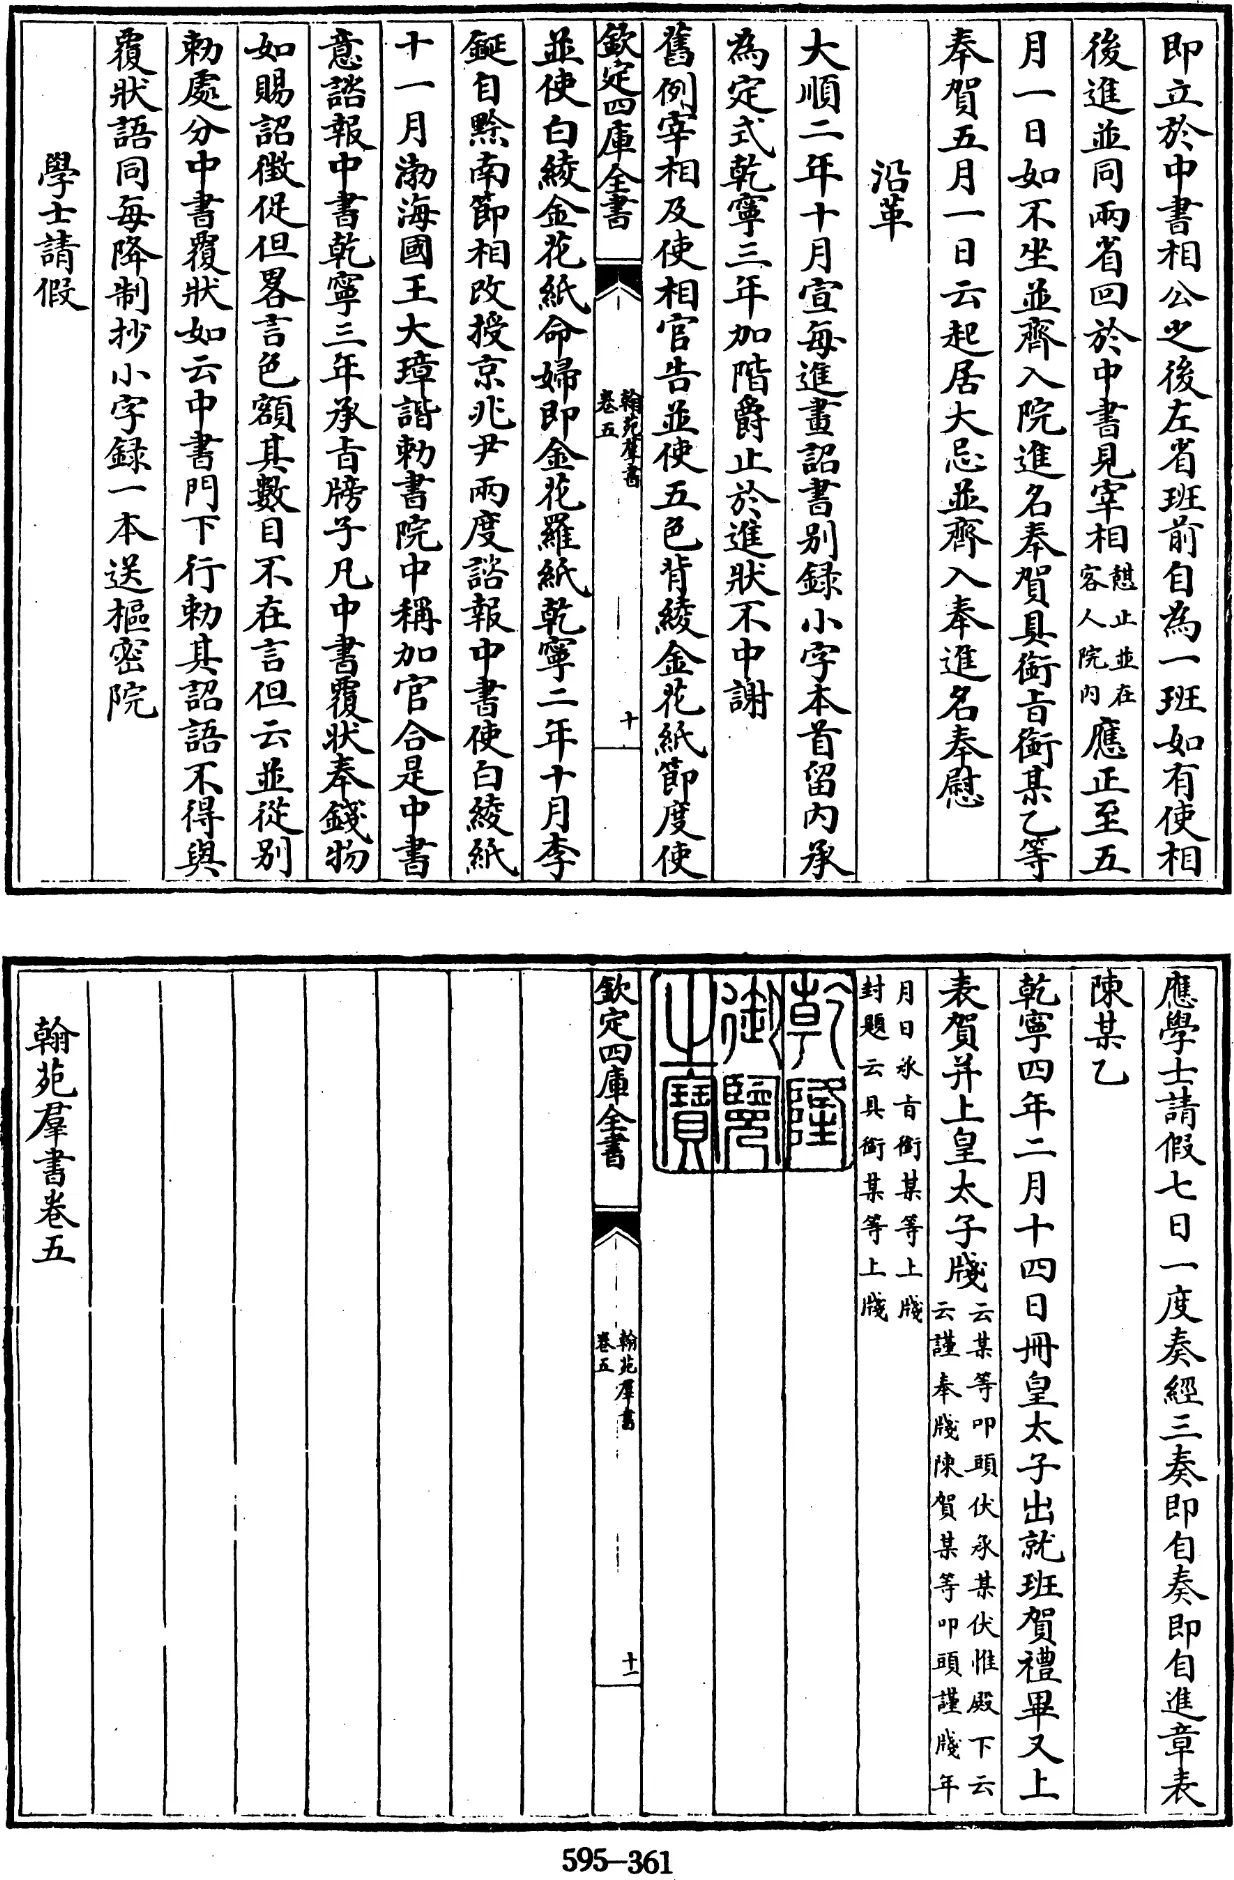 即立於中書相公之後左省班前自為一班如有使相
後進並同兩省回於中書見宰相憇止並在客人院内應正至五
月一日如不坐並齊入院進名奉賀具銜㫖銜某乙等
奉賀五月一日云起居大忌並齊入奉進名奉慰
沿革
大順二年十月宣每進畫詔書别録小字本首留内承
為定式乾寧三年加階爵止於進狀不中謝
舊例宰相及使相官告並使五色背綾金花紙節度使
欽定四庫全書
翰苑羣書
卷五
十
並使白綾金花紙命婦即金花羅紙乾寧二年十月李
鋋自黔南節相改授京兆尹兩度諮報中書使白綾紙
十一月渤海國王大瑋諧勅書院中稱加官合是中書
意諮報中書乾寧三年承㫖牓子凡中書覆狀奉錢物
如賜詔徴促但畧言色額其數目不在言但云並從别
勅處分中書覆狀如云中書門下行勅其詔語不得與
覆狀語同每降制抄小字録一本送樞密院
學士請假
應學士請假七日一度奏經三奏即自奏即自進章表
陳某乙
乾寧四年二月十四日冊皇太子出就班賀禮畢又上
表賀并上皇太子牋云某等叩頭伏承某伏惟殿下云云謹奉牋陳賀某等叩頭謹牋年
月日承㫖銜某等上牋
封題云具銜某等上牋
乾隆
御覽
之寶
欽定四庫全書
翰苑羣書
卷五
十一
翰苑羣書卷五
595-361